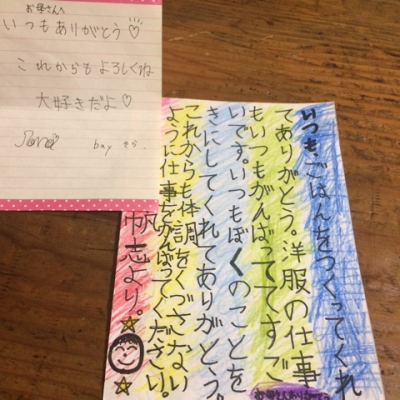 お母さんへ
いつもありがとう♡
これからもよろしくね
大好きだよ♡
いつもごはんをつくってくれ
てありがとう。洋服の仕事
もいつもがんばっててすご
いです。いつもぼくのことを
きにしてくれてありがとう。
これからも体調をくずさない
ように仕事をがんばってください。
帆志より。
お母さんありがとう